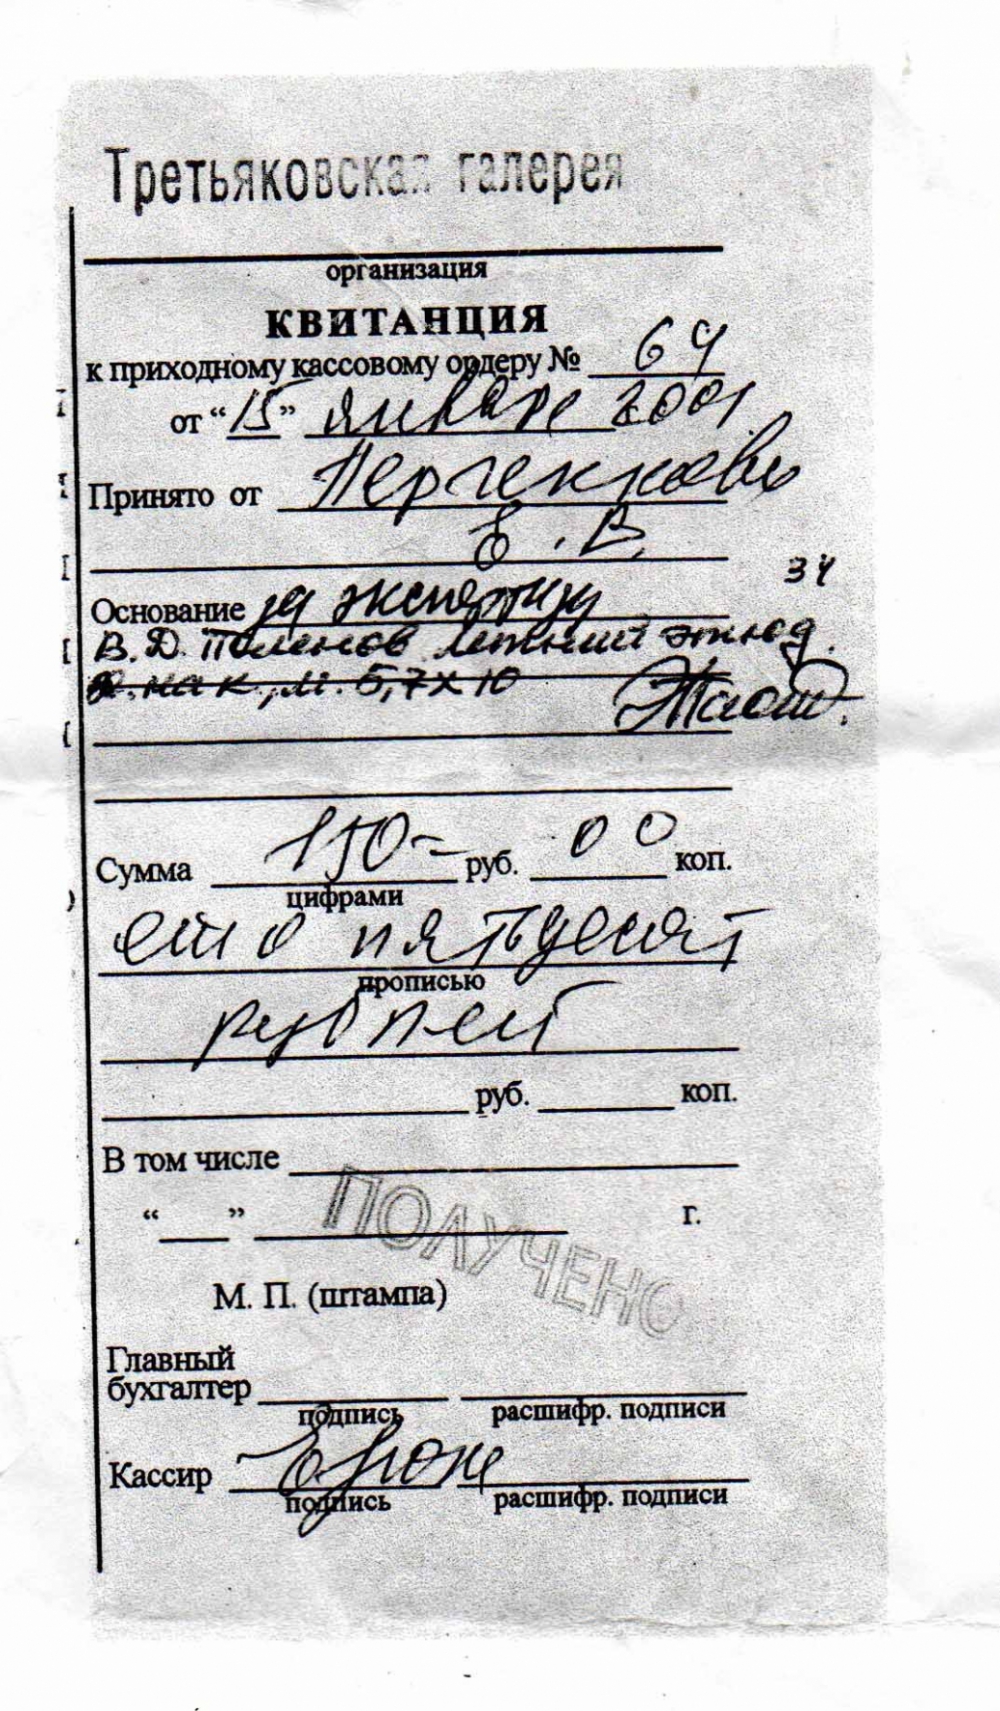 Третьяковская галерея
организация
КВИТАНЦИЯ
к приходному кассовому ордеру № 64
от “15” января 2001
Принято от
Е. В.
Основание за экспертизу 34
В. Д. Поленов летний этюд.
х. на к., м. 5,7 х 10
Сумма 150= руб. 00 коп.
цифрами
сто пятьдесят
прописью
рублей
руб. коп.
В том числе
“ ” г.
ПОЛУЧЕНО
М. П. (штампа)
Главный
бухгалтер
подпись расшифр. подписи
Кассир
подпись расшифр. подписи